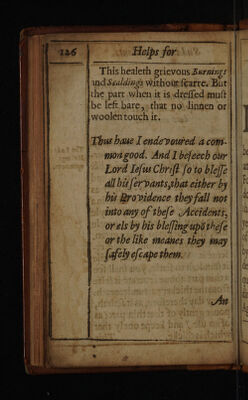 126 Helps for
This healeth grievous Burnings
and Scaldings without scarre. But
the part when it is dressed must
be left bare, that no linnen or
woolen touch it.
Thus haue I endevoured a com-
mon good. And I beseech our
Lord Iesus Christ so to blesse
all his servants, that either by
his Providence they fall not
into any of these Accidents,
or els by his blessing upō these
or the like meanes they may
safely escape them.
An